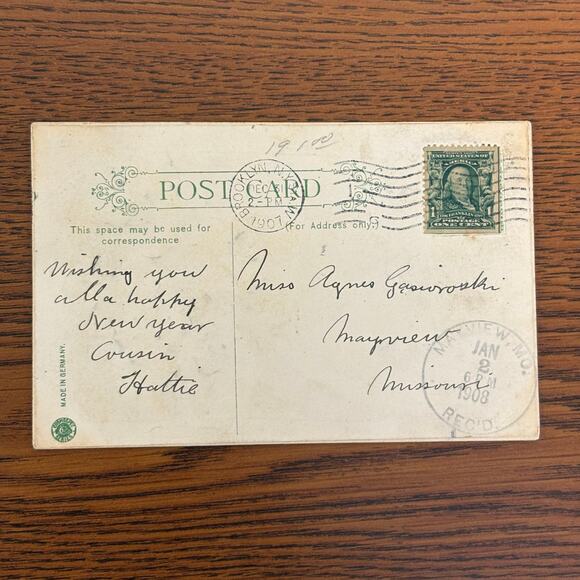 19 1.00
POST CARD
BROOKLYN, N.Y.
DEC
2-PM
1907
UNITED STATES OF AMERICA
FRANKLIN
POSTAGE
ONE CENT
This space may be used for
correspondence
(For Address only.)
Wishing you
all a happy
New Year
Cousin
Hattie
Miss Agnes Gasiorowski
Mayview
Missouri
MAYVIEW, MO.
JAN
2
6 PM
1908
REC'D.
MADE IN GERMANY.